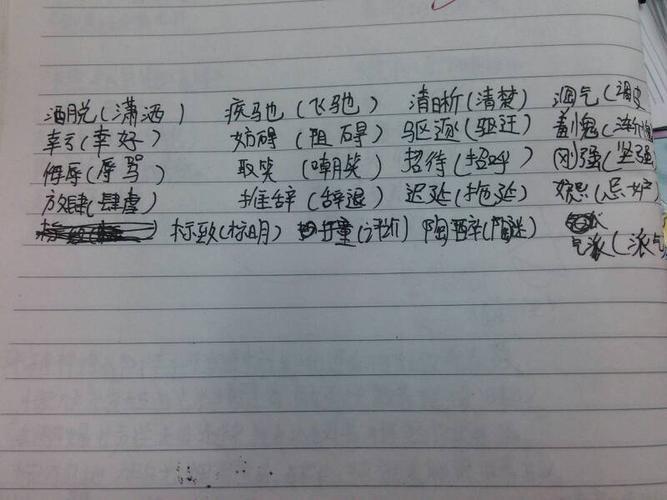 洒脱(潇洒) 疾驰(飞驰) 清晰(清楚) 淘气(调皮
幸亏(幸好) 妨碍(阻碍) 驱逐(驱迁) 羞愧(惭愧
侮辱(辱骂) 取笑(嘲笑) 招待(招呼) 刚强(坚强
放肆(肆虐) 推辞(辞退) 迟延(拖延) (忌妒
标致(标明) (评价) 陶醉(陶迷)
气派(派气